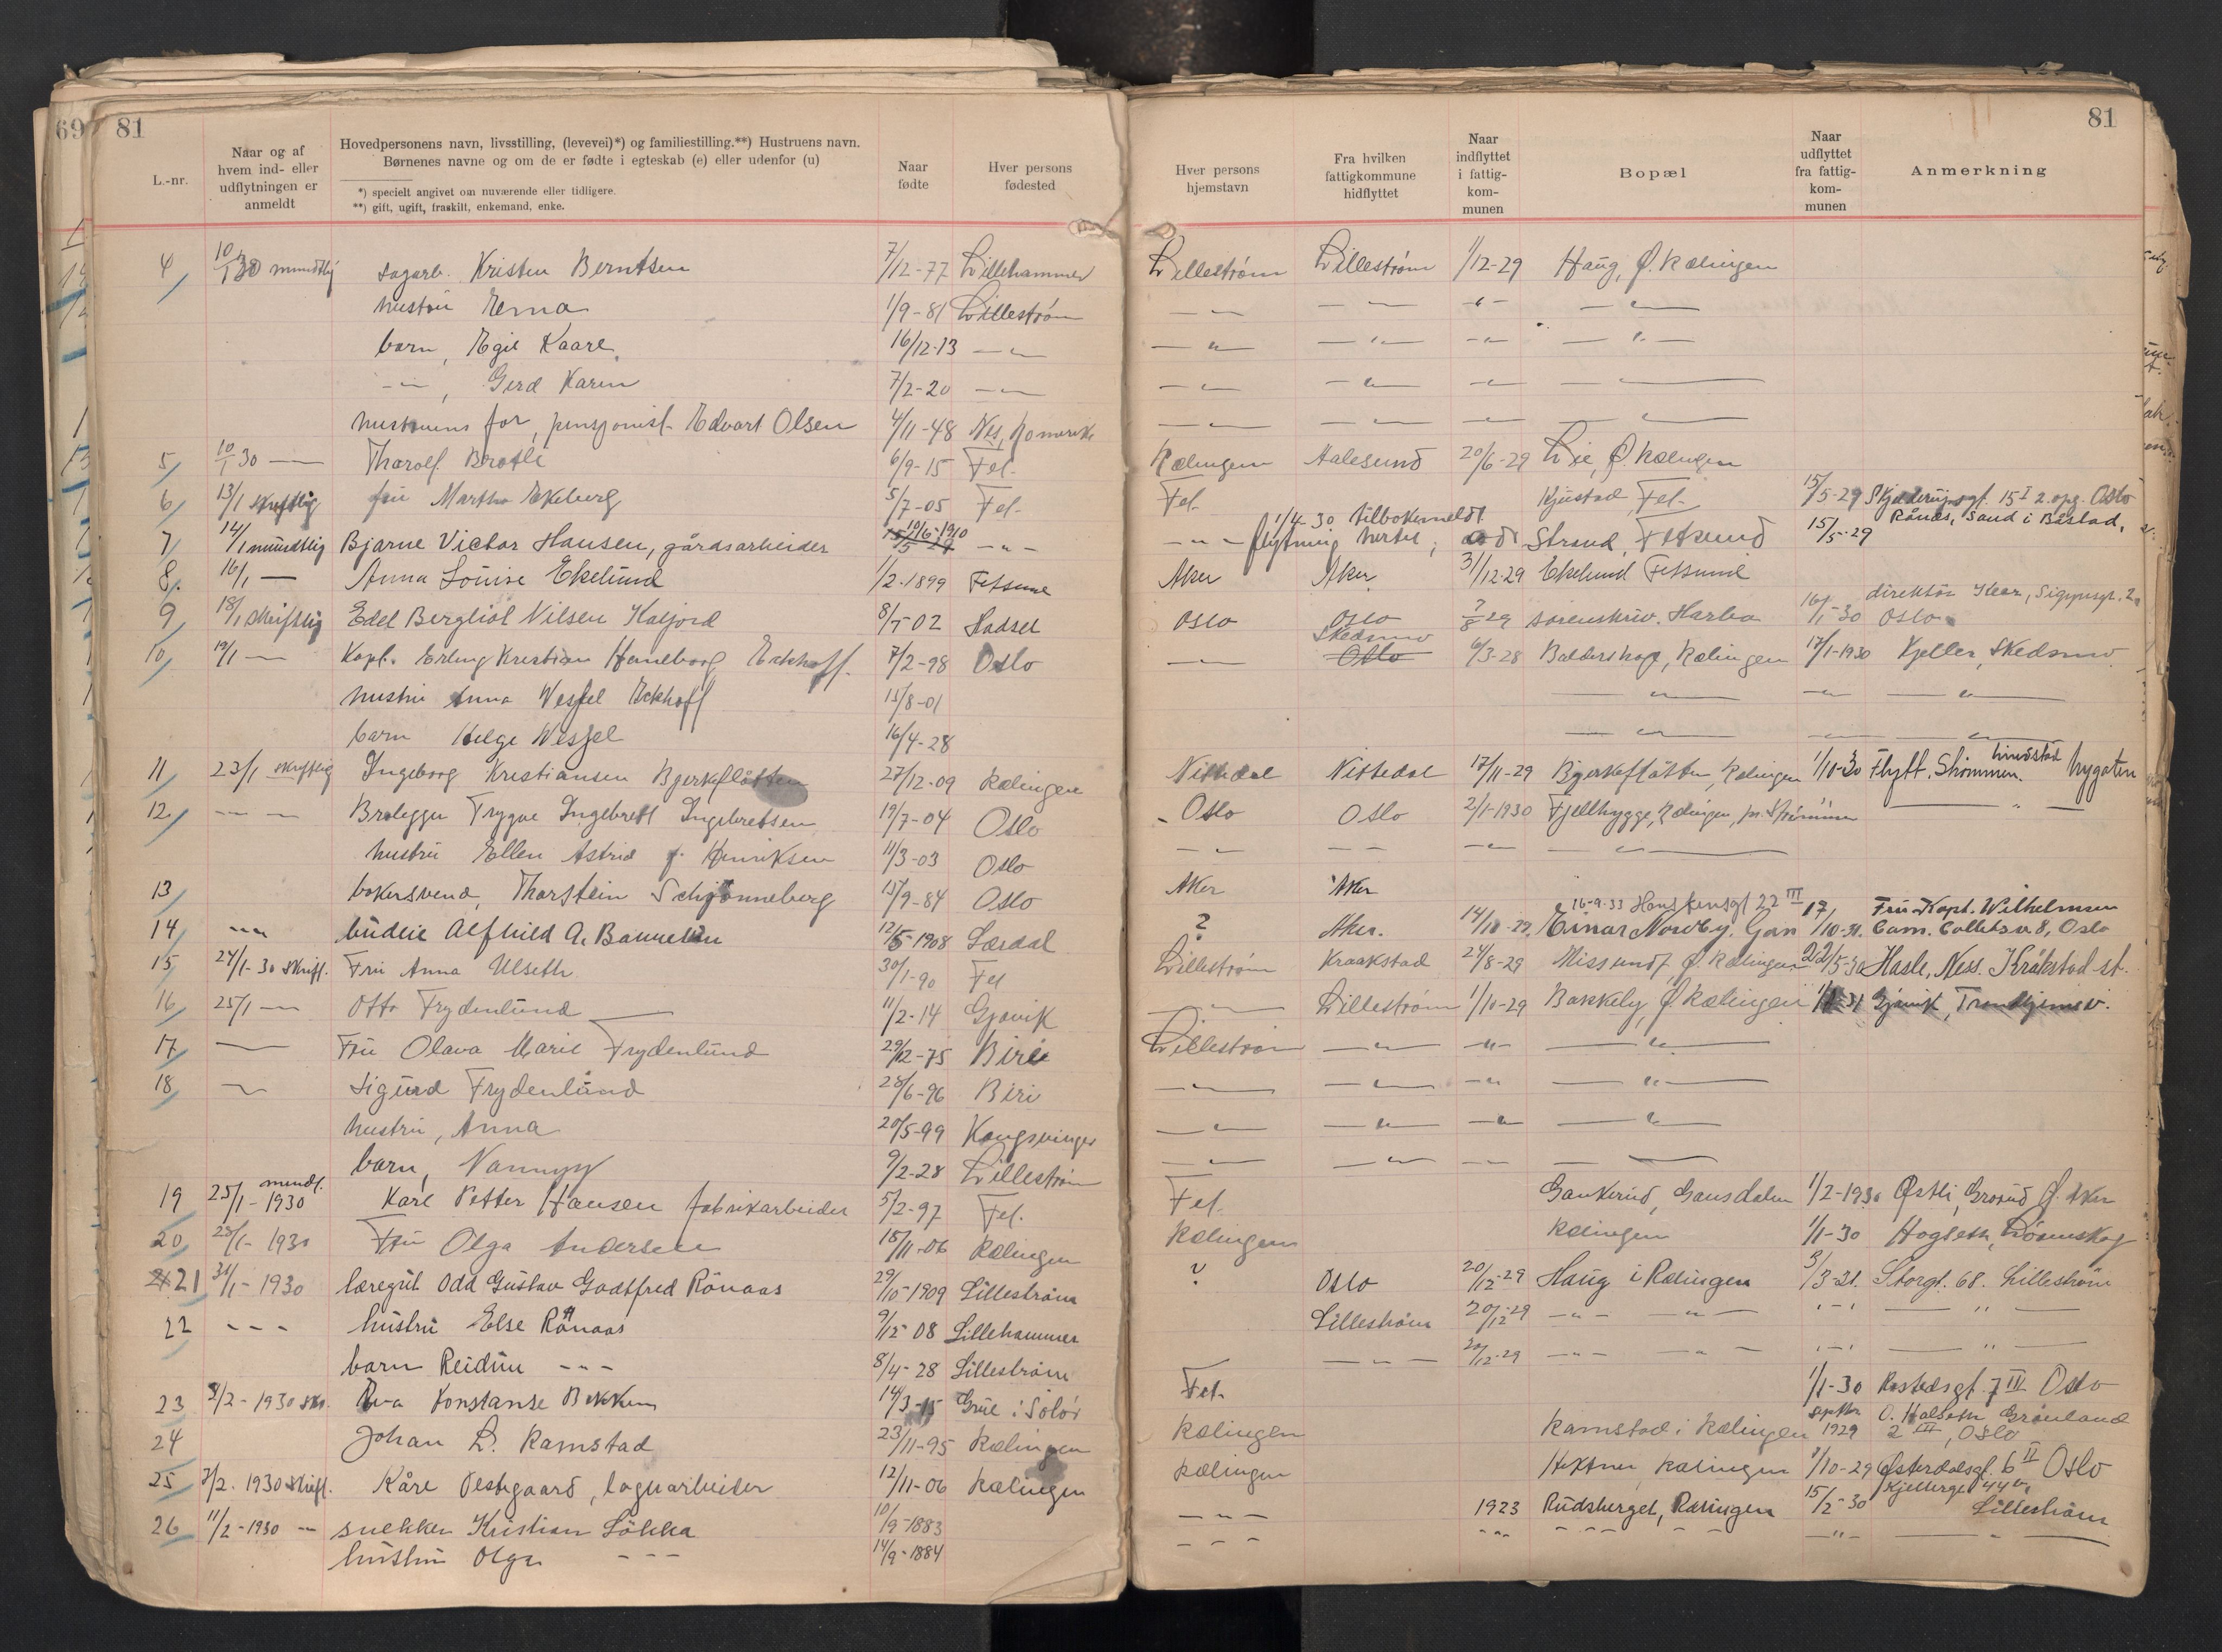 69 81
L.-nr.
Naar og af hvem ind- eller udflytningen er anmeldt
Hovedpersonens navn, livsstilling, (levevei)*) og familiestilling.**) Hustruens navn.
Børnenes navne og om de er fødte i egteskab (e) eller udenfor (u)
*) specielt angivet om nuværende eller tidligere.
**) gift, ugift, fraskilt, enkemand, enke.
Naar fødte
Hver persons fødested
81
Hver persons hjemstavn
Fra hvilken fattigkommune hidflyttet
Naar indflyttet i fattig-kom-munen
Bopæl
Naar udflyttet fra fattig-kom-munen
Anmerkning
4 10/1 30 mundtlig sagarb. Kristen Berntsen 7/12-77 Lillehammer Lillestrøm Lillestrøm 1/12-29 Haug, Ø. Rælingen
hustru Erna 1/9-81 Lillestrøm — " — — " — - " - — " —
barn, Egil Kaare 16/12-13 — " — — " — — " — - " - — " —
— " —, Gerd Karin 7/2-20 — " — — " — — " — — " — — " —
hustruens far, pensjonist Edvart Olsen 4/11-48 Nes, Romerike — " — — " — — " — — " —
5 10/1 30 — Tharolf Bråtli 6/9-15 Fet Rælingen Aalesund 20/6-29 Lie, Ø. Rælingen
6 13/1 skriftlig fru Martha Ekeberg 5/7-05 Fet Fet Kjustad, Fet 15/5-29 15 I 2. opg. Oslo
1/4-30 tilbakemeldt Rånås, Sand i Båstad,
7 14/1 mundtlig Bjarne Victor Hansen, gårdsarbeider 10/6-1910 - " - - " - flytning hertil, Strand, Fetsund 15/5-29
8. 16/1 — Anna Louise Ekelund 1/2-1899 Fetsund Aker Aker 31/12-29 Ekelund Fetsund
9 18/1 skriftlig Edel Bergliot Nilsen Kalfjord 8/5-02 Hadsel Oslo Oslo 7/8 29 sorenskriv. Harbo 16/1-30 direktør Oslo
10 19/1 — Kapt. Erling Kristian Haneborg Eckhoff 7/2-98 Oslo — " — Skedsmo Oslo 6/3-28 Baldershage, Rælingen 17/1-1930 Kjeller, Skedsmo
hustru Anna Wessel Eckhoff 15/8-01 — " — — " — — " —
barn Helge Wessel 16/4-28 — " — — " — — " —
11 23/1 skriftlig Ingeborg Kristiansen Bjerkeflåtten 27/12-09 Rælingen Nittedal Nittedal 17/11-29 Bjerkeflåtten, Rælingen 1/10-30 Flytt. Strømmen.
12 - " - Brolegger Trygve Ingebrett Ingebretsen 19/7-04 Oslo Oslo Oslo 2/1-1930 Fjellhygge, Rælingen, pr. Strømmen — " —
hustru Ellen Astrid f. Henriksen 11/3-03 Oslo - " - - " - - " - — " —
13 bakersvend, Tharstein Schjønneberg 15/9-84 Oslo Aker Aker
16-9-33 22 III
14 - " - budeie Alfhild A. 12/5-1908 Lærdal ? Aker. 14/10-29. Einar Nordby. Gan 17/10-31. Fru Kapt. Wilhelmsen Cam. Collets v 8, Oslo
15 24/1-30 skriftl. Fru Anna Ulseth 30/1-90 Fet Lillestrøm Kraakstad 24/8-29 Missund, Ø. Rælingen 22/5-30 Hasle, Ness. Kråkstad st.
16 25/1 — Otto Frydenlund 11/2-14 Gjøvik — " — Lillestrøm 1/10-29 Bakkely, Ø. Rælingen Gjøvik, Trondhjemsv.
17 — Fru Olava Marie Frydenlund 29/12-75 Biri Lillestrøm — " — - " - — " —
18 — Sigurd Frydenlund 28/6-96 Biri — " — — " — - " - — " —
hustru, Anna 20/5-99 Kongsvinger — " — — " — — " — — " —
barn, Nanny 9/2-28 Lillestrøm — " — — " — — " — — " —
19 25/1-1930 mundl. Karl Petter Hansen fabrikarbeider 5/2-97 Fet. Fet. Gankerud, Gansdalen 1/2-1930 Østli, Grorud Ø. Aker
20 1930 Fru Olga Andersen 15/11-06 Rælingen Rælingen Rælingen 1/1-30 Hogseth, Lørenskog
21 31/1-1930 læregut Odd Gustav Godtfred Rönaas 29/10-1909 Lilleström ? Oslo 20/12-29 Haug i Rælingen 3/3-31. Storgt. 68. Lilleström
22 - - - hustru Else Rönaas 9/12 08 Lillehammer Lilleström 20/12-29 - " - - " - - " - — " —
barn Reidun - " - 8/4-28 Lilleström - " - 20/12-29 - " - - " - - " - — " —
23 1930 skr. Eva Konstanse Bekken 14/3-15 Grue i Solør Fet 1/1-30 7 IV Oslo
24 Johan L. Ramstad 23/11-95 Rælingen Rælingen Ramstad i Rælingen septbr 1929 O. Halseth Grønland 2 III, Oslo
25 7/2. 1930 skriftl. Kåre Oestgaard, lagerarbeider 12/11-06 Rælingen Rælingen Hektner, Rælingen 1/10-29 Østerdalsgt. 6 II Oslo
26 11/2-1930 — snekker Kristian Løkka 10/9-1883 - " - 1923 Rudsberget, Rælingen 15/2-30 Kjellergt 44 v. Lilleström
hustru Olga - - - 14/9-1884 - - - - " - - " - - " - — " —